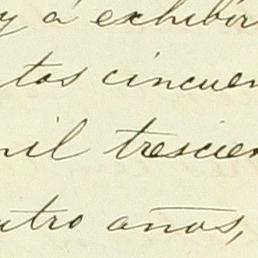 y á exhibir
tos cincuen
mil trescien
atro años,